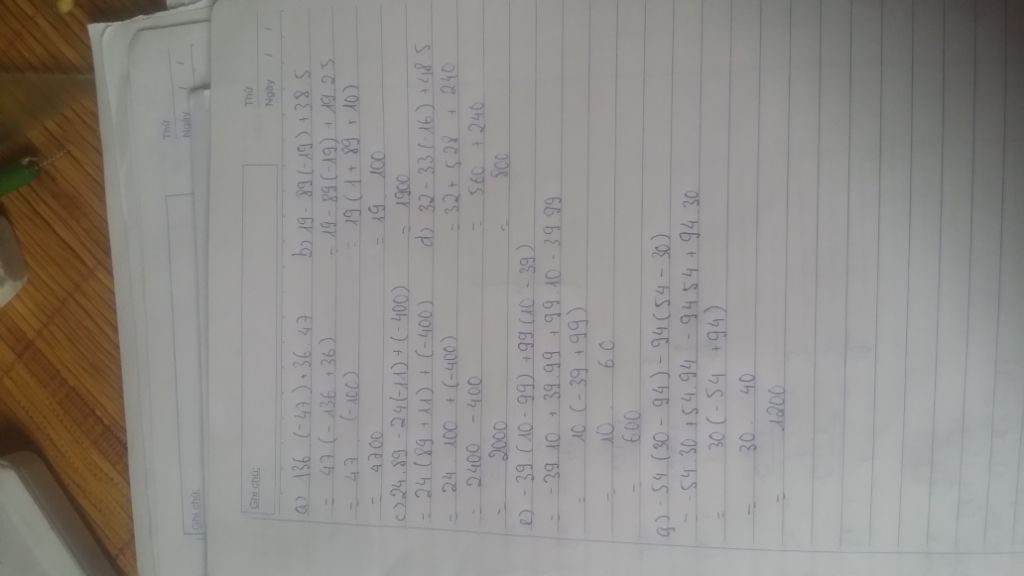 Thứ
Ngày / /
Ghi chú:
Thứ
Ngày / /
Ghi chú:
a) 136 (-47) + 36.47
= 47 (-136 + 36)
= 47 (-100)
= 4700
b) 19 - 89 (-19) + 38 5
= 19 - 89 (-19) + 19 2 5
= 19 (1 + 89 + 10)
= 19 100
= 1900
c) 24.89 - 24 (-11) + (-400)
= 24 (89 + 11) + (-400)
= 24 100 + (-400)
= 2400 - 400
= 2000
d) 32 - 33 (-16) + 48 5
= 32 + 528 + 240
= 560 + 240
= 800
e) -39 (10 - 99) + 99 (10 - 39)
= -39 10 + 39.99 + 99 10 - 39 99
= 10 (-39 + 99)
= 10 60
= 600
g) -54 (30 - 94) - 94 (54 - 30)
= -54 30 + 54.94 - 94 54 + 94 30
= 30 (-54 + 94)
= 30 40
= 1200